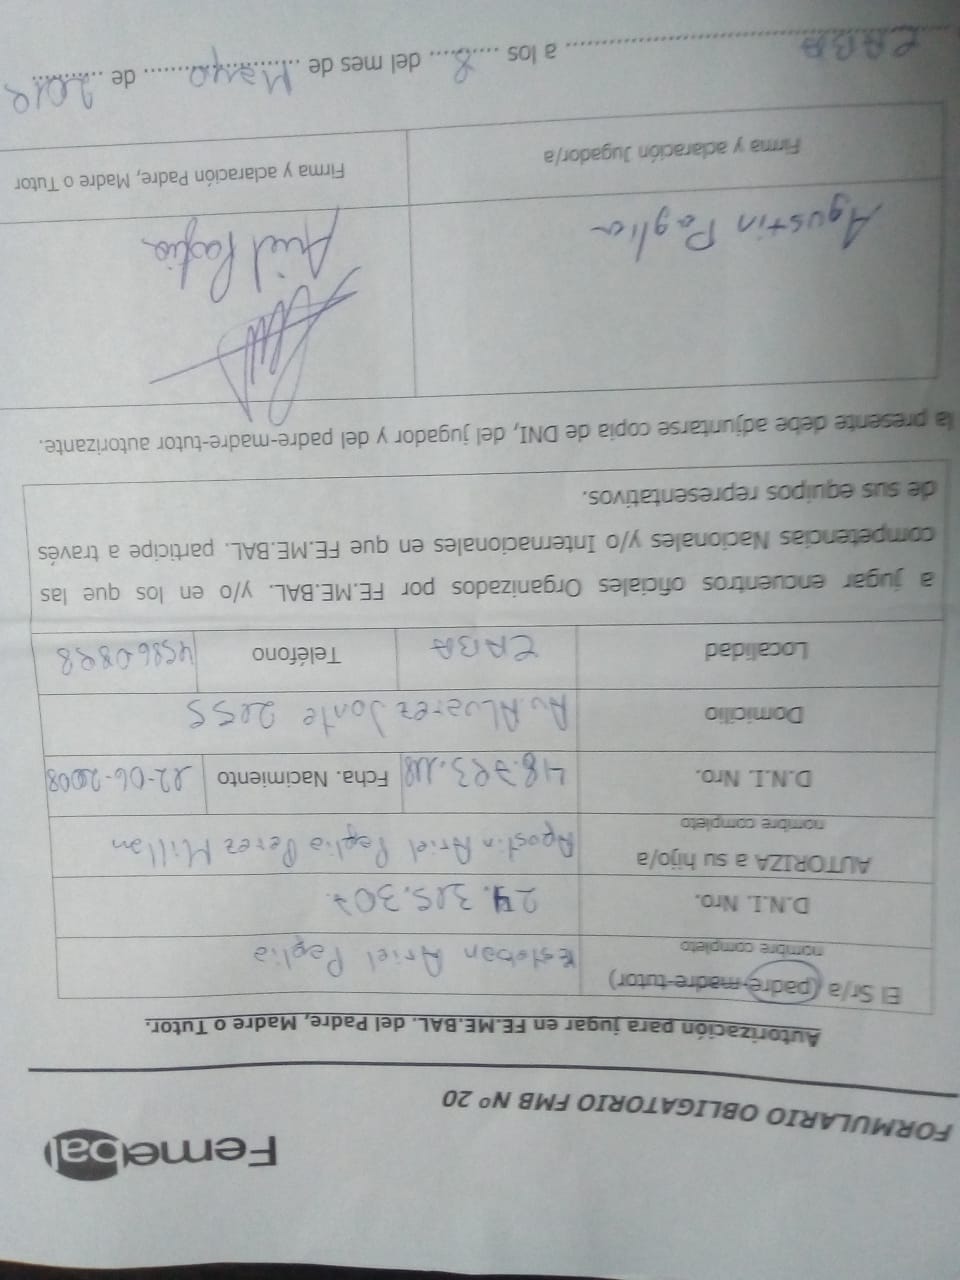 Femebal
FORMULARIO OBLIGATORIO FMB Nº 20
Autorización para jugar en FE.ME.BAL. del Padre, Madre o Tutor.
El Sr/a (padre-madre-tutor) nombre completo Esteban Ariel Paglia
D.N.I. Nro. 24.315.307
AUTORIZA a su hijo/a nombre completo Agostin Ariel Paglia Perez Millan
D.N.I. Nro. Fcha. Nacimiento 22-06-2008
Domicilio Av. Alvarez Jonte 2055
Localidad CABA Teléfono 45860828
a jugar encuentros oficiales Organizados por FE.ME.BAL. y/o en los que las
competencias Nacionales y/o Internacionales en que FE.ME.BAL. participe a través
de sus equipos representativos.
la presente debe adjuntarse copia de DNI, del jugador y del padre-madre-tutor autorizante.
Agustin Paglia Ariel Paglia
Firma y aclaración Jugador/a Firma y aclaración Padre, Madre o Tutor
CABA a los 8 del mes de Mayo de 2018